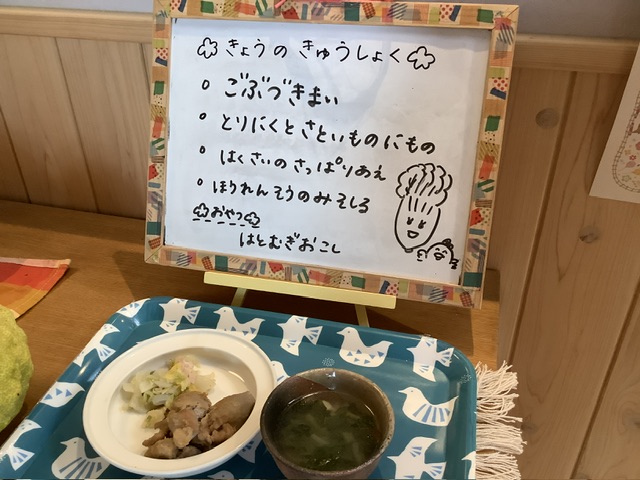 きょうの きゅうしょく
ごぶづきまい
とりにくとさといものにもの
はくさいのさっぱりあえ
ほうれんそうのみそしる
おやつ
はとむぎおこし